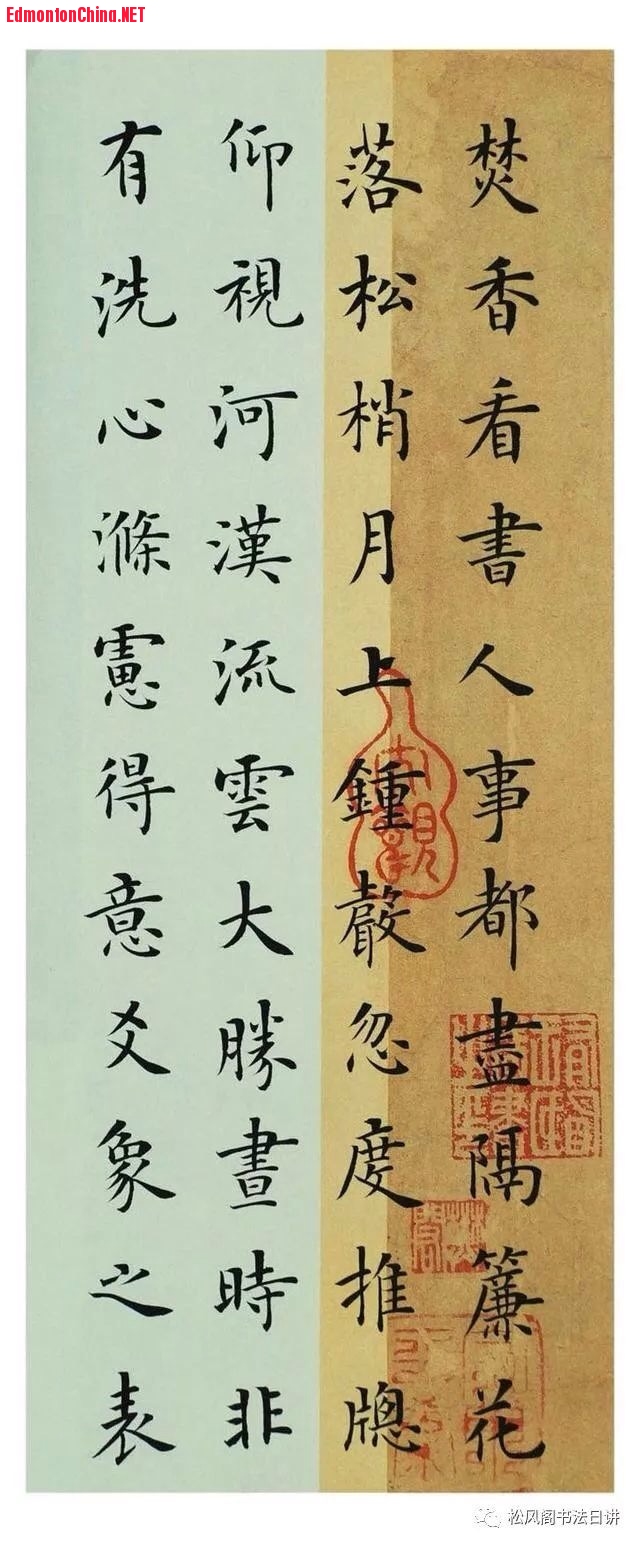 EdmontonChina.NET
焚香看書人事都盡隔簾花
落松梢月上鍾聲忽度推牕
仰視河漢流雲大勝晝時非
有洗心滌慮得意爻象之表
松风阁书法日讲